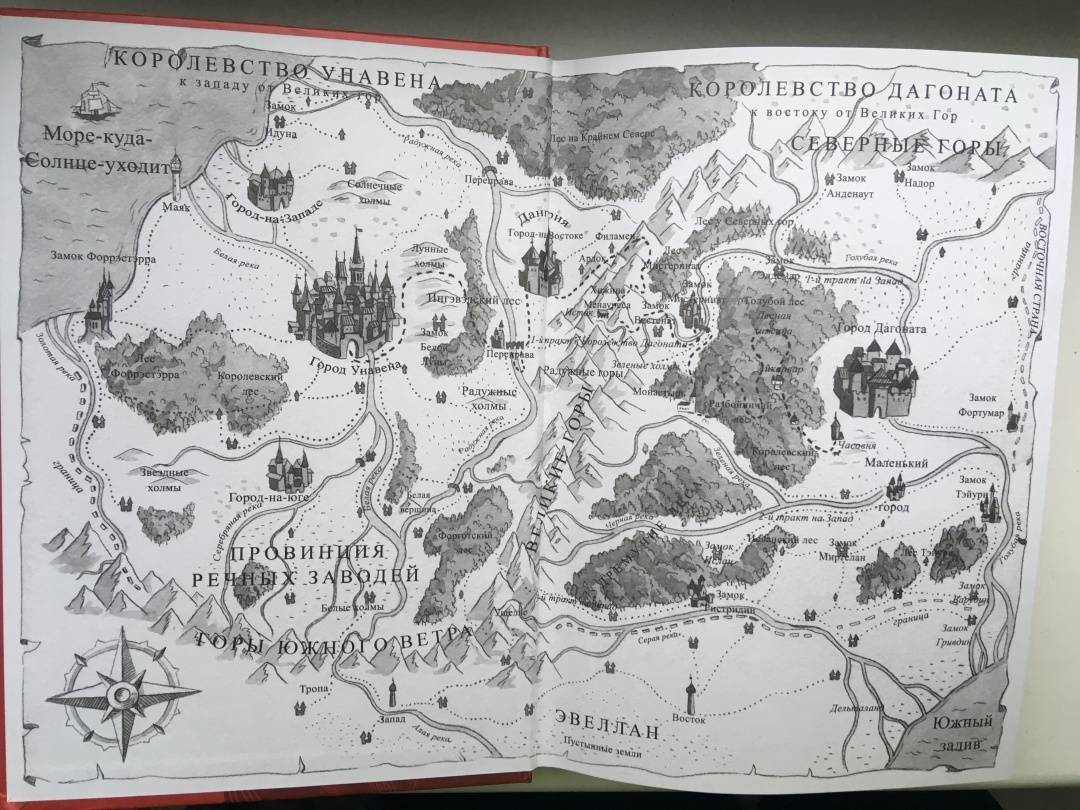 КОРОЛЕВСТВО УНАВЕНА
к западу от Великих гор
Море-куда-
Солнце-уходит
Замок
Идуна
Радужная река
Маяк
Город-на-Западе
Солнечные
холмы
Переправа
Белая река
Лунные
холмы
Замок Форрэстэрра
Ингэвэлский лес
Замок
Белой
Луны
Город Унавена
Переправа
Золотая река
Лес
Форрэстэрра
Королевский
лес
Радужные
холмы
Радужная река
граница
Звездные
холмы
Город-на-юге
Серебряная река
Белая река
Белая
вершина
ПРОВИНЦИЯ
РЕЧНЫХ ЗАВОДЕЙ
Белые холмы
ГОРЫ ЮЖНОГО ВЕТРА
Тропа
Запад
Алая река
Лес на Крайнем Севере
Дангрия
Город-на-Востоке
Филамен
Ардок
КОРОЛЕВСТВО ДАГОНАТА
к востоку от Великих Гор
СЕВЕРНЫЕ ГОРЫ
Замок
Анденаут
Замок
Надор
Лес у Северных гор
Лес
Замок
Голубая река
1-й тракт на Запад
ВОСТОЧНАЯ СТРАНА
граница
Хижина
Менауреса
Исток
Замок
Замок
Голубой лес
Лесная
хижина
Город Дагоната
1-й тракт в Королевство Дагоната
Зеленые холмы
Радужные горы
Монастырь
Разбойничий
лес
Королевский
лес
Часовня
Замок
Фортумар
ВЕЛИКИЕ ГОРЫ
Зеленая река
Маленький
город
Замок
Черная река
2-й тракт на Запад
Замок
Замок
Замок
Ристридин
граница
Голубая река
Замок
Замок
Гривдин
Ущелье
Серая река
ЭВЕЛЛАН
Пустынные земли
Восток
Южный
залив